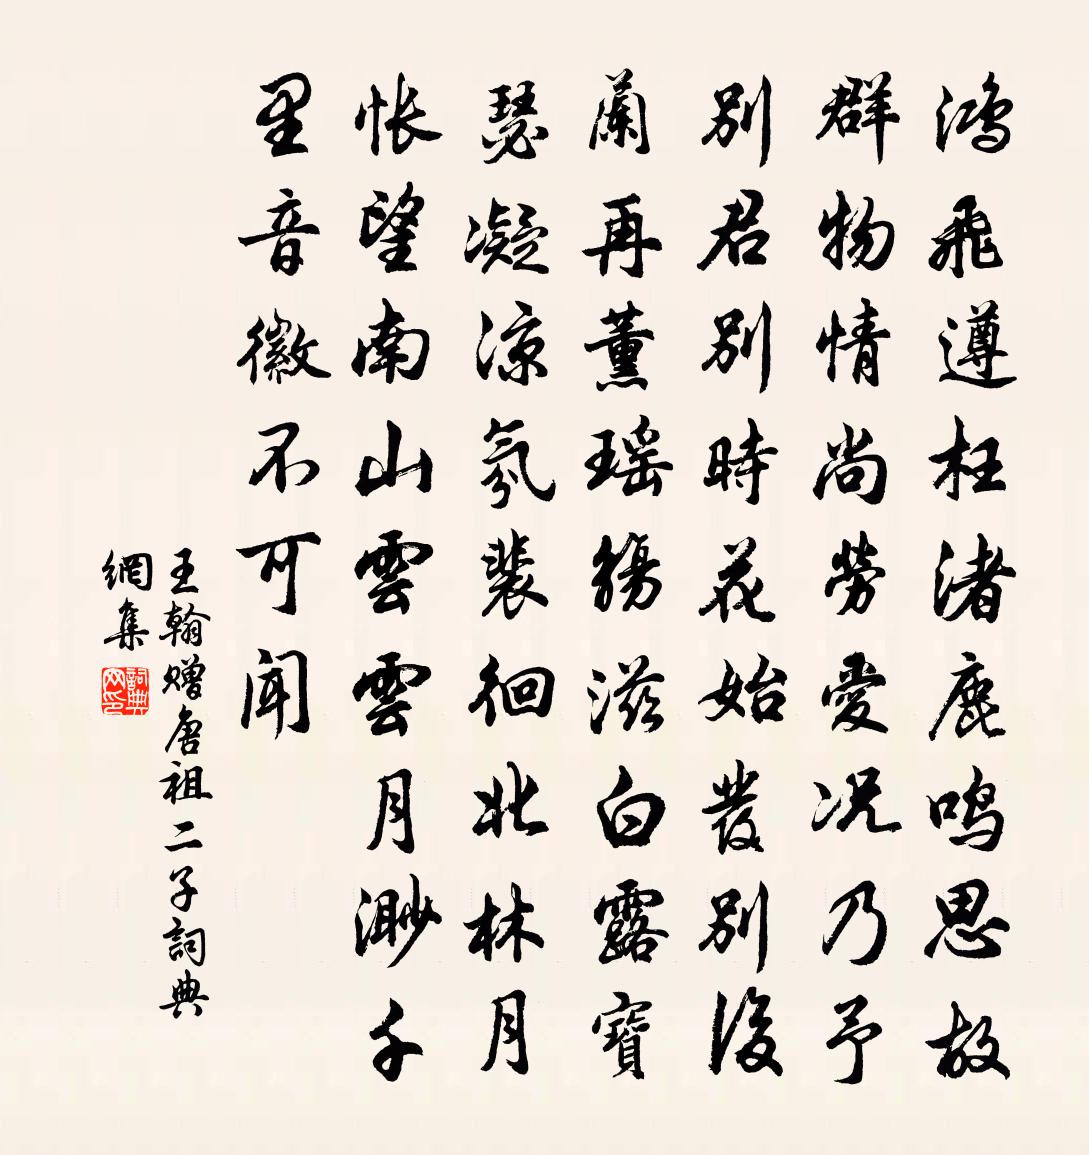 鴻飛遵枉渚鹿鳴思故
群物情尚勞愛況乃予
別君別時花始發別後
蘭再薰瑤觴滋白露寶
瑟凝涼氛裴徊北林月
悵望南山雲雲月渺千
里音徽不可聞
王翰贈唐祖二子詞典
網集
詞典網印